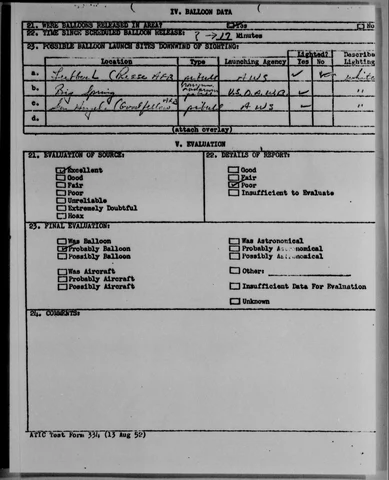 IV. BALLOON DATA
21. WERE BALLOONS RELEASED IN AREA? Yes No
22. TIME SINCE SCHEDULED BALLOON RELEASE: 17 Minutes
23. POSSIBLE BALLOON LAUNCH SITES DOWNWIND OF SIGHTING:
Lighted? Describe
Location Type Launching Agency Yes No Lighting
a. (Reese AFB AWS white
b. Big Spring "
c. San Angelo (Goodfellow AFB AWS "
d.
(attach overlay)
V. EVALUATION
21. EVALUATION OF SOURCE: 22. DETAILS OF REPORT:
Excellent Good
Good Fair
Fair Poor
Poor Insufficient to Evaluate
Unreliable
Extremely Doubtful
Hoax
23. FINAL EVALUATION:
Was Balloon Was Astronomical
Probably Balloon Probably Astronomical
Possibly Balloon Possibly Astronomical
Was Aircraft Other:
Probably Aircraft Insufficient Data For Evaluation
Possibly Aircraft
Unknown
24. COMMENTS:
ATIC Test Form 334 (13 Aug 52)